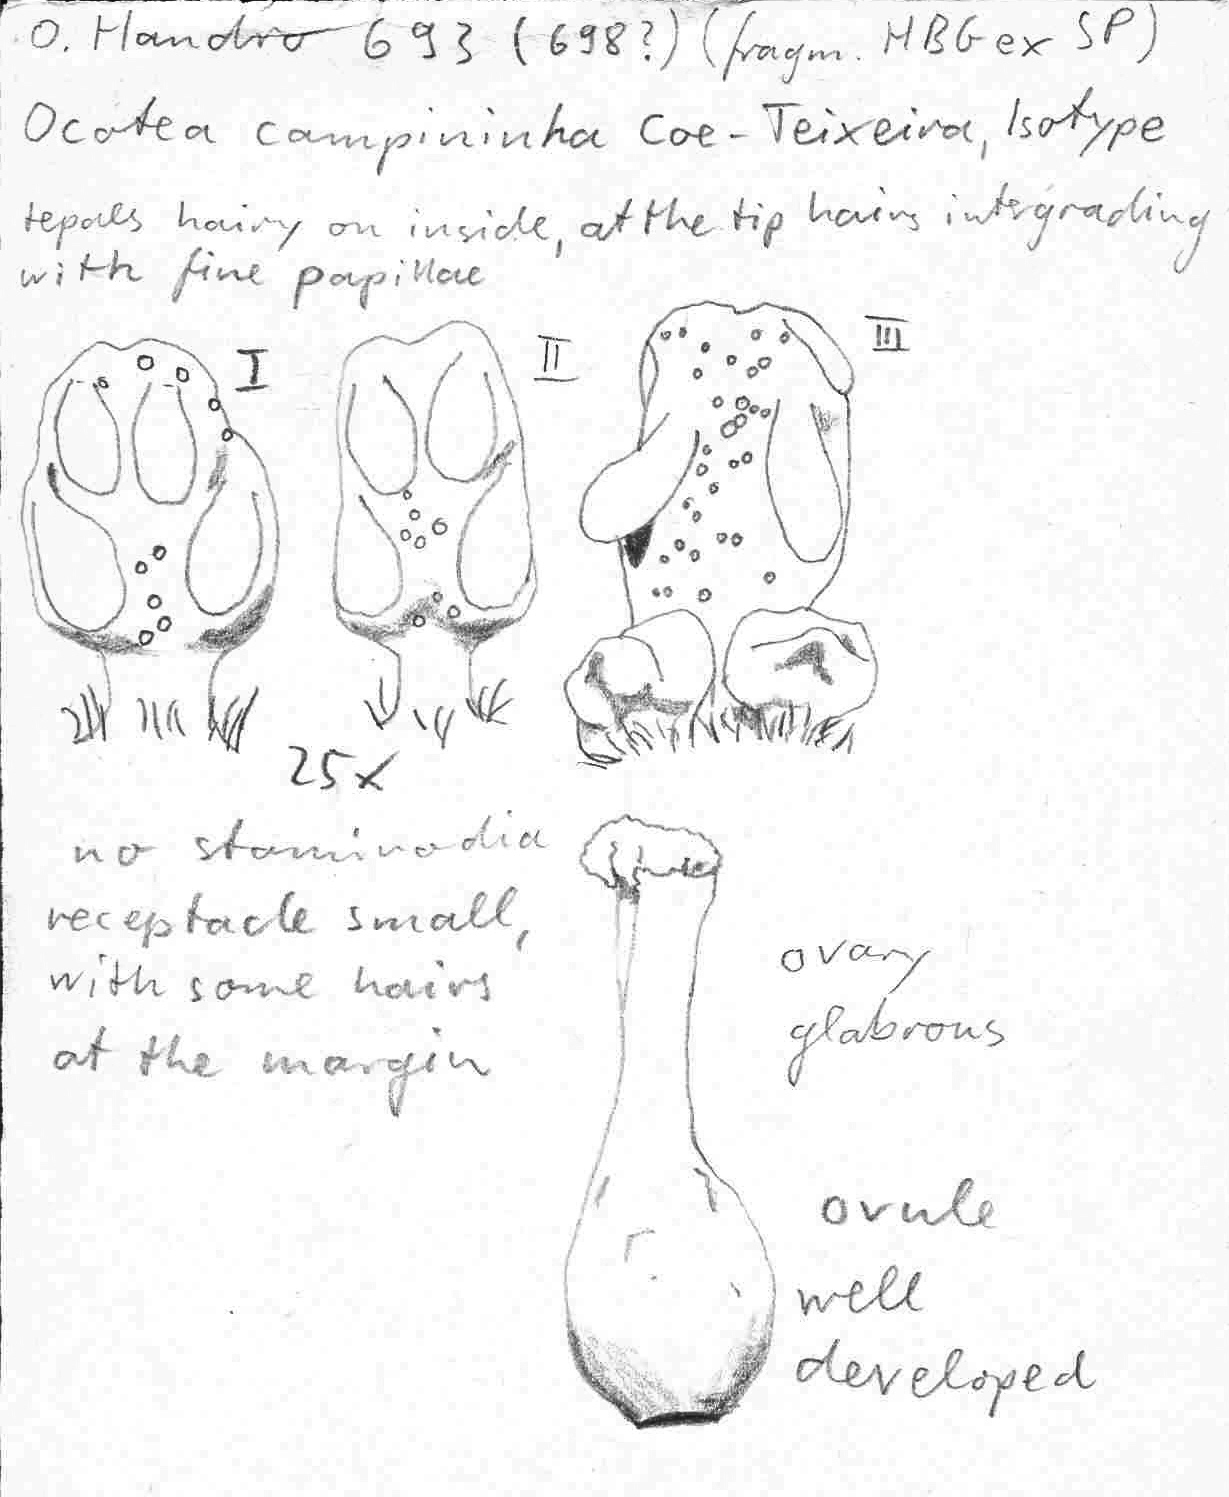 O. Handro 693 (698?) (fragm. HBG ex SP)
Ocotea campininha Coe-Teixeira, Isotype
tepals hairy on inside, at the tip hairs intergrading
with fine papillae
I
II
III
25x
no staminodia
receptacle small,
with some hairs
at the margin
ovary
glabrous
ovule
well
developed